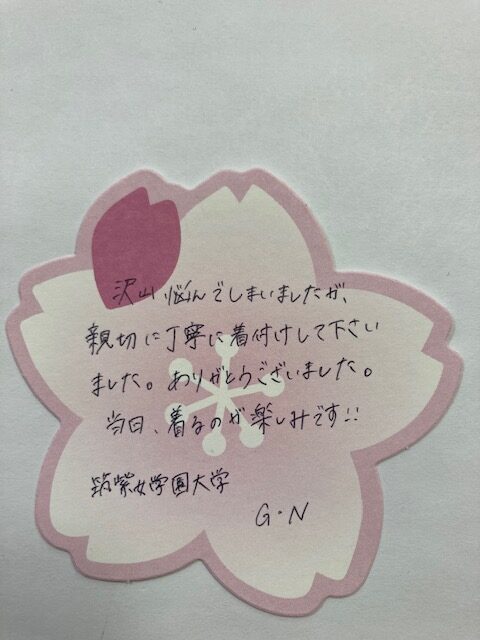 沢山悩んでしまいましたが、
親切に丁寧に着付けして下さい
ました。ありがとうございました。
当日、着るのが楽しみです!!
筑紫女学園大学
G・N